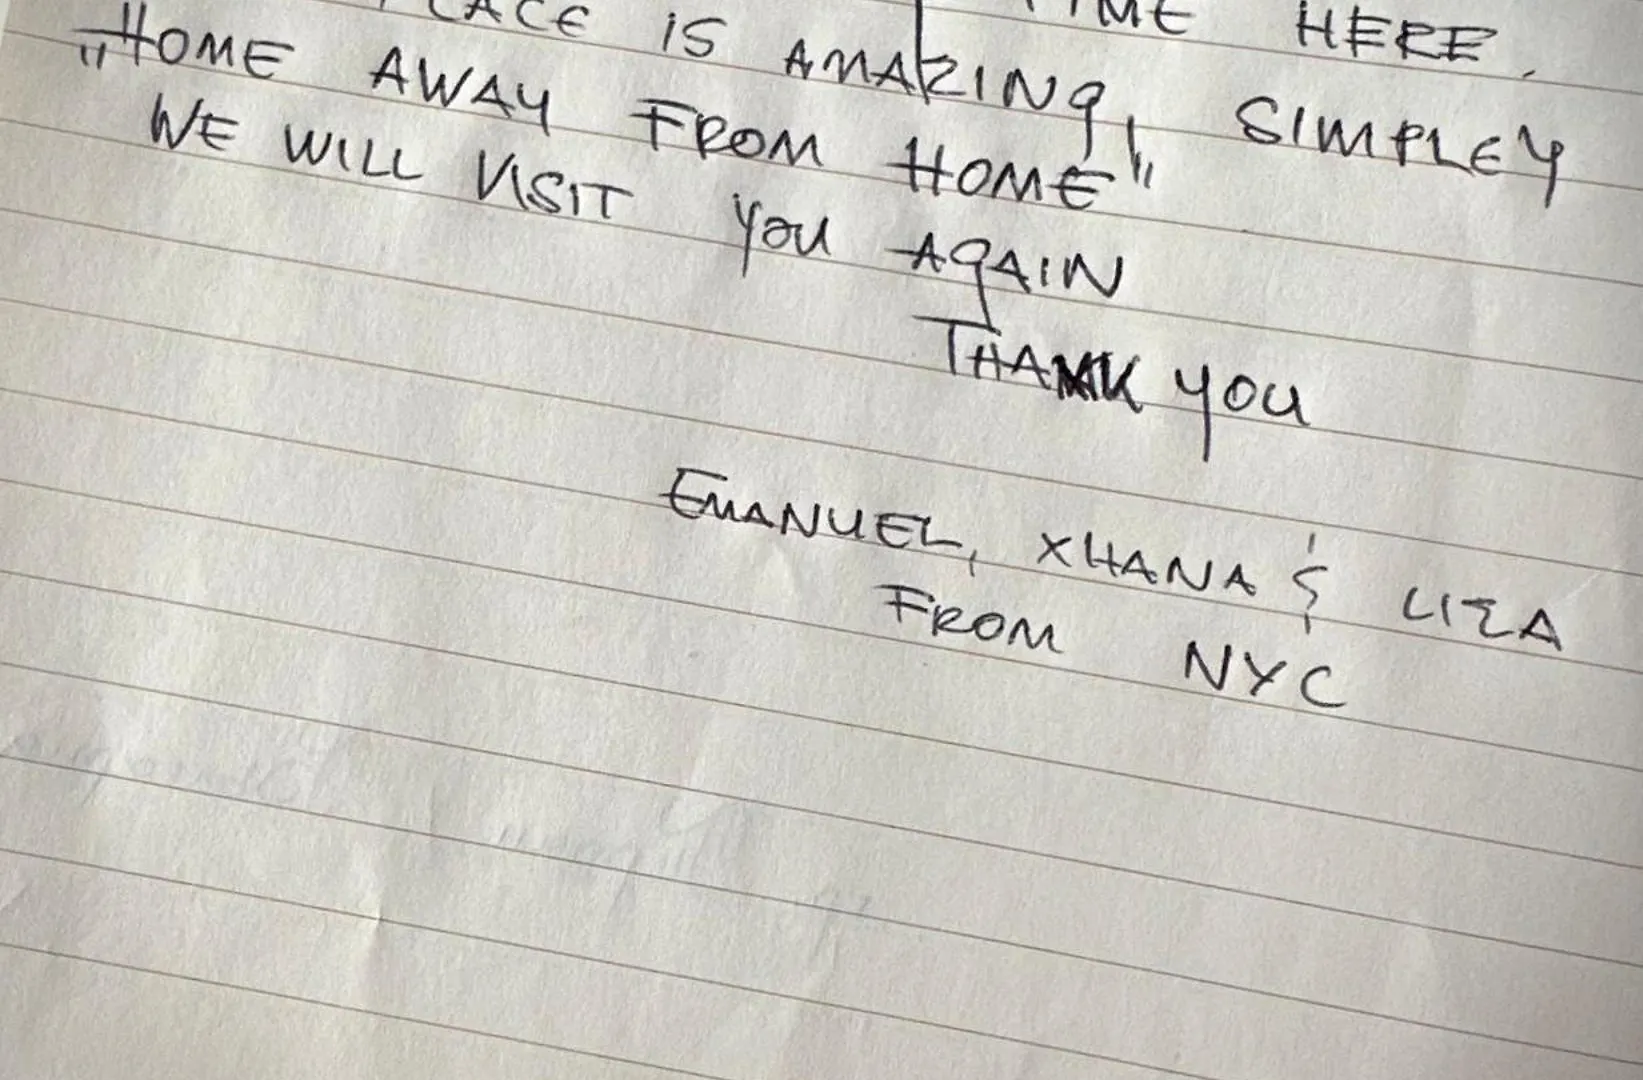 TIME HERE.
PLACE IS AMAZING, SIMPLEY
„HOME AWAY FROM HOME"
WE WILL VISIT YOU AGAIN
THANK YOU
EMANUEL, XHANA & LIZA
FROM NYC